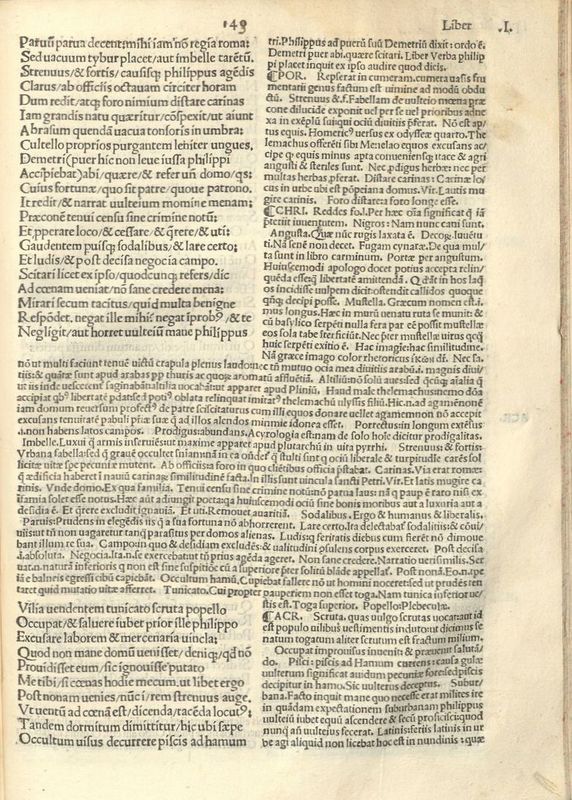 149
Liber .I.
Paruũ parua decent: mihi iam nõ regia roma:
Sed vacuum tybur placet/ aut imbelle tarẽtũ.
Strenuus/ & fortis/ causisq; philippus agẽdis
Clarus/ ab officiis octauam circiter horam
Dum redit/ atq; foro nimium distare carinas
Iam grandis natu quæritur/ cõspexit/ ut aiunt
Abrasum quendã uacua tonsoris in umbra:
Cultello proprios purgantem leniter ungues.
Demetri (puer hic non leue iussa philippi
Accipiebat) abi/ quære/ & refer unde domo/ qs:
Cuius fortunæ/ quo sit patre/ quoue patrono.
It redit/ & narrat uulteium nomine menam:
Præconẽ tenui censu sine crimine notũ:
Et properare loco/ & cessare/ & q̃rere/ & uti:
Gaudentem paruisq; sodalibus/ & lare certo:
Et ludis/ & post decisa negocia campo.
Scitari licet ex ipso/ quodcunq; refers/ dic
Ad cœnam ueniat/ nõ sane credere mena:
Mirari secum tacitus/ quid multa benigne
Respõdet. negat ille mihi: negat improbꝰ/ & te
Negligit/ aut horret uulteiũ mane philippus
tri. Philippus ad puerũ suũ Demetriũ dixit: ordo ẽ.
Demetri puer abi. quære scitari. Liber Verba philip
pi placet inquit ex ipso audire quod dicis.
¶POR. Repserat in cumeram. cumera uasis fru
mentarii genus factum est uimine ad modũ obdu
ctũ. Strenuus &.f. Fabellam de uulteio mœna præ
cone dilucide exponit
nexa in exẽplũ suiqui ociũ diuitiis p̃ferat. Nõ est ap/
tus equis. Homericꝰ uersus ex odyssea quarto. The
lemachus offerẽti sibi Menelao equos excusans ac/
cipe q; equis minus apta conuenienterq; itace & agri
angusti & steriles sunt. Nec prodigus herbæ: nec per
multas herbas p̃ferat. Distare carinas: Carinæ lo/
cus in urbe ubi est põpeiana domus. Vir. Lautis mu
gire carinis. Foro distare: a foro longe esse.
¶CHRI. Reddes fo.I. Per hæc oĩa significat
p̃teriit iuuentutem. Nigros: Nam nunc cani sunt.
Angusta. Quæ nũc rugis laxata ẽ. Decoꝝ. Iuuẽtu
ti. Na senẽ non decet. Fugam cynaræ. De qua mul/
ta sunt in libro carminum. Portæ per angustum.
Huiuscemodi apologo docet potius accepta relin/
quẽda esse
os incidisse uulpem dicit: ostendit callidos quoque
qñq; decipi posse. Mustella. Græcum nomen est.i.
mus longus. Hæc in murũ uenatu ruta se munit: &
cũ basylico serpẽti nulla fera par eẽ possit mustella
eos sola tabe iter ficiũt. Nec p̃ter mustellæ uirus qcq̃
huic serpẽti exitio ẽ. Hac imagine: hac similitudine.
Nã græce imago color rhetoricus
nõ ut multi faciunt tenuẽ victũ crapula plenus laudo: nec tñ mutuo ocia mea diuitiis arabũ.i. magnis diui/
tiis: & quãtæ sunt apud arabas pp thuris ac quoꝝ aromatũ affluẽtiã. Altiliũ: nõ solũ
ut iis inde uescerent saginabãt altilia uocabãtur apparet apud Pliniũ. Haud male thelemachus: nemo dõa
accipiat qbꝰ libertatẽ pdat: sed potiꝰ oblata relinquat imitatꝰ thelemachũ ulyssis filiũ. Hic. n. ad agnamẽnonẽ
iam domum reuersum profectꝰ de patre sciscitaturus cum illi equos donare uellet agamemnon nõ accepit
excusans tenuitatẽ pabuli p̃iæ suæ q̃ ad illos alendos minime idonea esset. Porrectus: in longum extẽsus
.i. non habens latos campos. Prodigus: abundans. Acyrologia est: nam de solo hole dicitur prodigalitas.
Imbelle. Luxui q̃ armis inseruiẽs: ut maxime apparet apud plutarchũ in uita pyrrhi. Strenuus: & fortis:
Vrbana fabella: sed q̃ graue occultet sñiam
licitæ uitæ spe pecuniæ mutent. Ab officiis: a foro in quo clientibus officia p̃stabat. Carinas. Via erat romæ:
q̃ ædificia haberet ĩ nauiũ carinaꝝ similitudinẽ facta. In illis sunt uincula sancti Petri. Vir. Et latis mugire ca
rinis. Vnde domo. Ex qua familia. Tenui censu sine crimine notũ: nõ parua laus: nã q paup ẽ raro nisi ex
ĩfamia solet esse notus. Hæc aũt adiungit poeta: qa huiuscemodi ociũ sine bonis moribus aut a luxuria aut a
desidia ẽ. Et q̃rere excludit ignauiã. Et uti. Remouet auaritiã. Sodalibus. Ergo & humanus & liberalis.
Paruis: Prudens in elegẽdis iis q a sua fortuna nõ abhorrerent. Lare certo. Ita delectabaꞇ sodalitiis: & cõui/
uiis: ut tñ non uagaretur tanq; parasitus per domos alienas. Ludisq; feriatis diebus cum fierẽt nõ dimoue
bant illum re sua. Campo: in quo & desidiam excludẽs: & ualitudini psulens corpus exerceret. Post decisa
.i. absoluta. Negocia. Ita.n. se exercebat ut tñ prius agẽda ageret. Non sane credere. Narratio uerisimilis. Ser
uat.n. naturã inferioris
iã e balneis egressi cibũ capiebãt. Occultum hamũ. Cupiebat fallere nõ ut homini noceret: sed ut prudẽs ren
taret quid mutatio uitæ afferret. Tunicato. Cui propter pauperiem non esset toga. Nam tunica inferior ue/
Vilia uendentem tunicato scruta popello
Occupat/ & saluere iubet prior ille philippo
Excusare laborem & mercenaria uincla:
Quod non mane domũ uenisset/ deniq; qđ nõ
Prouidisset eum/ sic ignouisse putato
Me tibi/ si cœnas hodie mecum. ut libet ergo
Post nonam uenies/ nũc i/ rem strenuus auge.
Vt uentũ ad cœnã est/ dicenda/ tacẽda locutꝰ:
Tandem dormitum dimittitur/ hic ubi sæpe
Occultum uisus decurrere piscis ad hamum
stis est. Toga superior. Popello: Plebeculæ.
¶ACR. Scruta. quas uulgo scrutas uocant: aut id
est populo uilibus uestimentis induto: ut dicimus se
natum togatum aliter scrutum est fractum milium.
Occupat improuisus inuenit: & præuenit saluta/
do. Piscis: piscis ad Hamum currens: causa gulæ
uulterium significat auidum pecuniæ: foris ed piscis
decipitur in hamo. Sic uulterius deceptus. Subur/
bana. Facto inquit mane quo necesse erat milites ire
in quãdam expectationem suburbanam philippus
uulteiũ iubet equũ ascendere & secũ proficisci: quod
nunq; añ uulteius fecerat. Latinis: feriis latinis in ur
be agi aliquid non licebat hoc est in nundinis: quæ